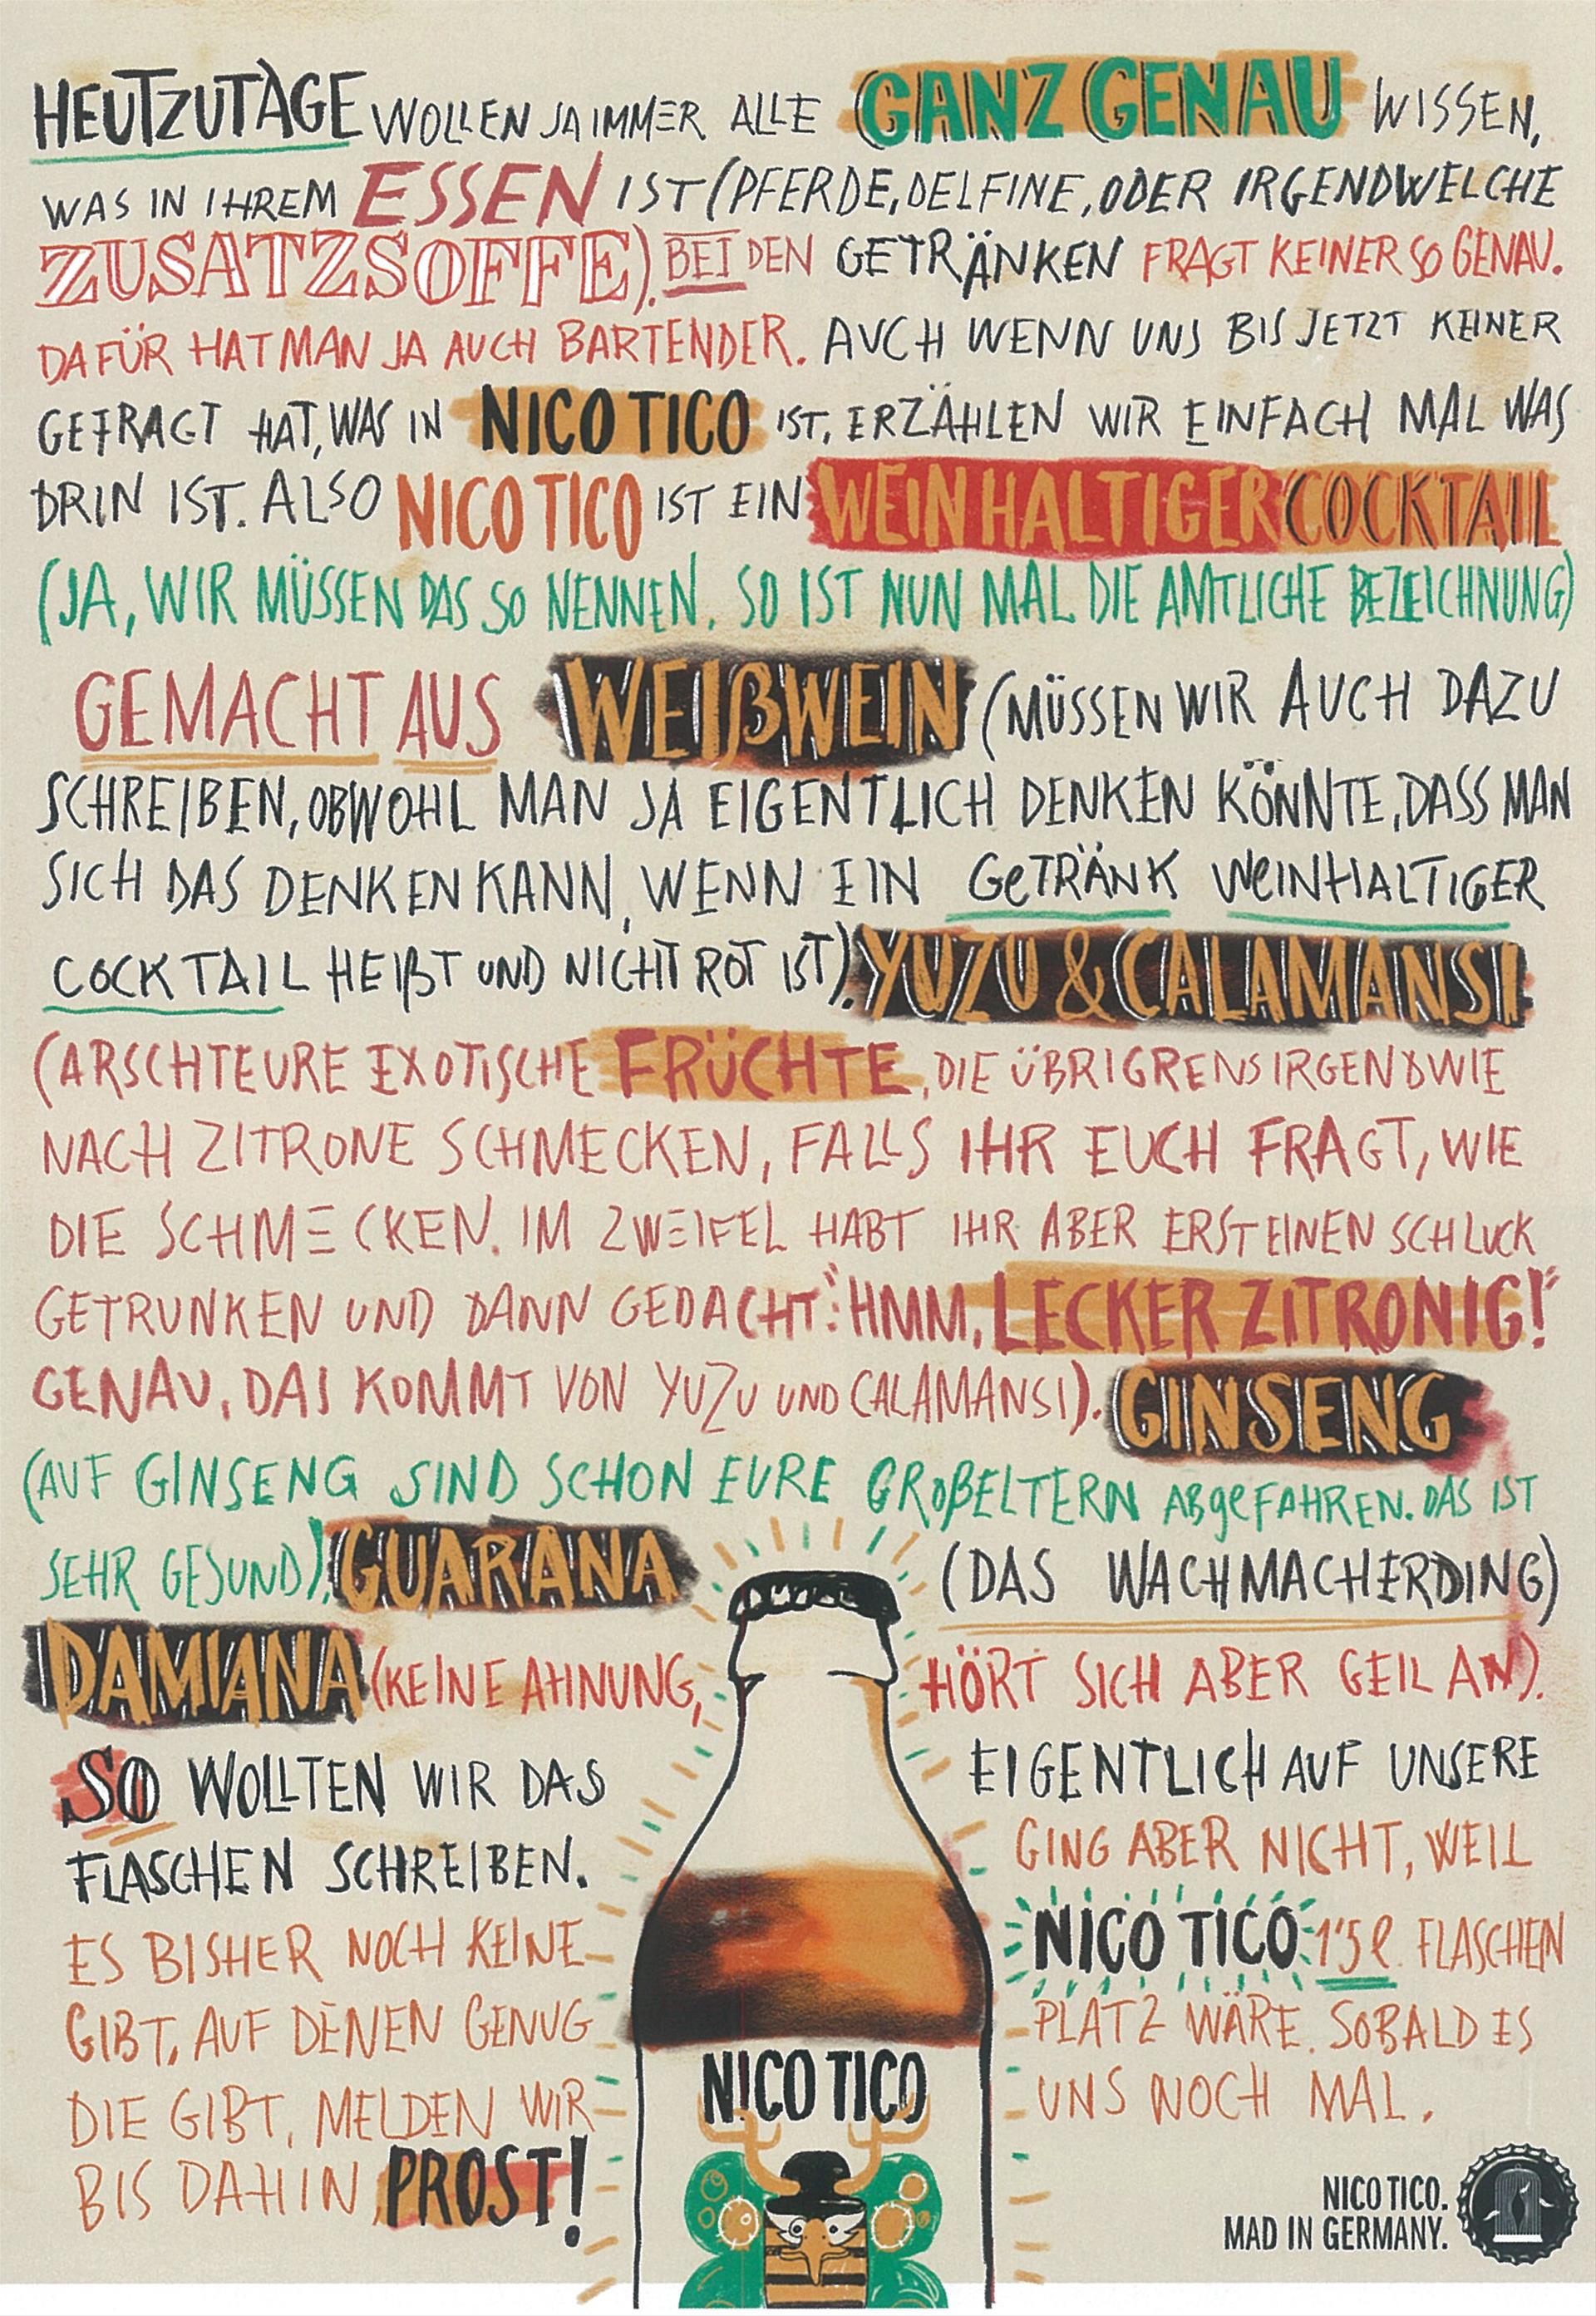 HEUTZUTAGE WOLLEN JA IMMER ALLE GANZ GENAU WISSEN,
WAS IN IHREM ESSEN IST (PFERDE, DELFINE, ODER IRGENDWELCHE
ZUSATZSOFFE). BEI DEN GETRÄNKEN FRAGT KEINER SO GENAU.
DAFÜR HAT MAN JA AUCH BARTENDER. AUCH WENN UNS BIS JETZT KEINER
GEFRAGT HAT, WAS IN NICO TICO IST, ERZÄHLEN WIR EINFACH MAL WAS
DRIN IST. ALSO NICO TICO IST EIN WEINHALTIGER COCKTAIL
(JA, WIR MÜSSEN DAS SO NENNEN. SO IST NUN MAL DIE AMTLICHE BEZEICHNUNG)
GEMACHT AUS WEIßWEIN (MÜSSEN WIR AUCH DAZU
SCHREIBEN, OBWOHL MAN JA EIGENTLICH DENKEN KÖNNTE, DASS MAN
SICH DAS DENKEN KANN, WENN EIN GETRÄNK WEINHALTIGER
COCKTAIL HEIßT UND NICHT ROT IST). YUZU & CALAMANSI
(ARSCHTEURE EXOTISCHE FRÜCHTE, DIE ÜBRIGRENS IRGENDWIE
NACH ZITRONE SCHMECKEN, FALLS IHR EUCH FRAGT, WIE
DIE SCHMECKEN. IM ZWEIFEL HABT IHR ABER ERST EINEN SCHLUCK
GETRUNKEN UND DANN GEDACHT: "HMM, LECKER ZITRONIG!"
GENAU, DAS KOMMT VON YUZU UND CALAMANSI). GINSENG
(AUF GINSENG SIND SCHON EURE GROßELTERN ABGEFAHREN. DAS IST
SEHR GESUND), GUARANA (DAS WACHMACHERDING)
DAMIANA (KEINE AHNUNG, HÖRT SICH ABER GEIL AN).
SO WOLLTEN WIR DAS EIGENTLICH AUF UNSERE
FLASCHEN SCHREIBEN. GING ABER NICHT, WEIL
ES BISHER NOCH KEINE NICO TICO 1'5 l FLASCHEN
GIBT, AUF DENEN GENUG PLATZ WÄRE. SOBALD ES
DIE GIBT, MELDEN WIR UNS NOCH MAL.
BIS DAHIN PROST!
NICO TICO
NICO TICO.
MAD IN GERMANY.